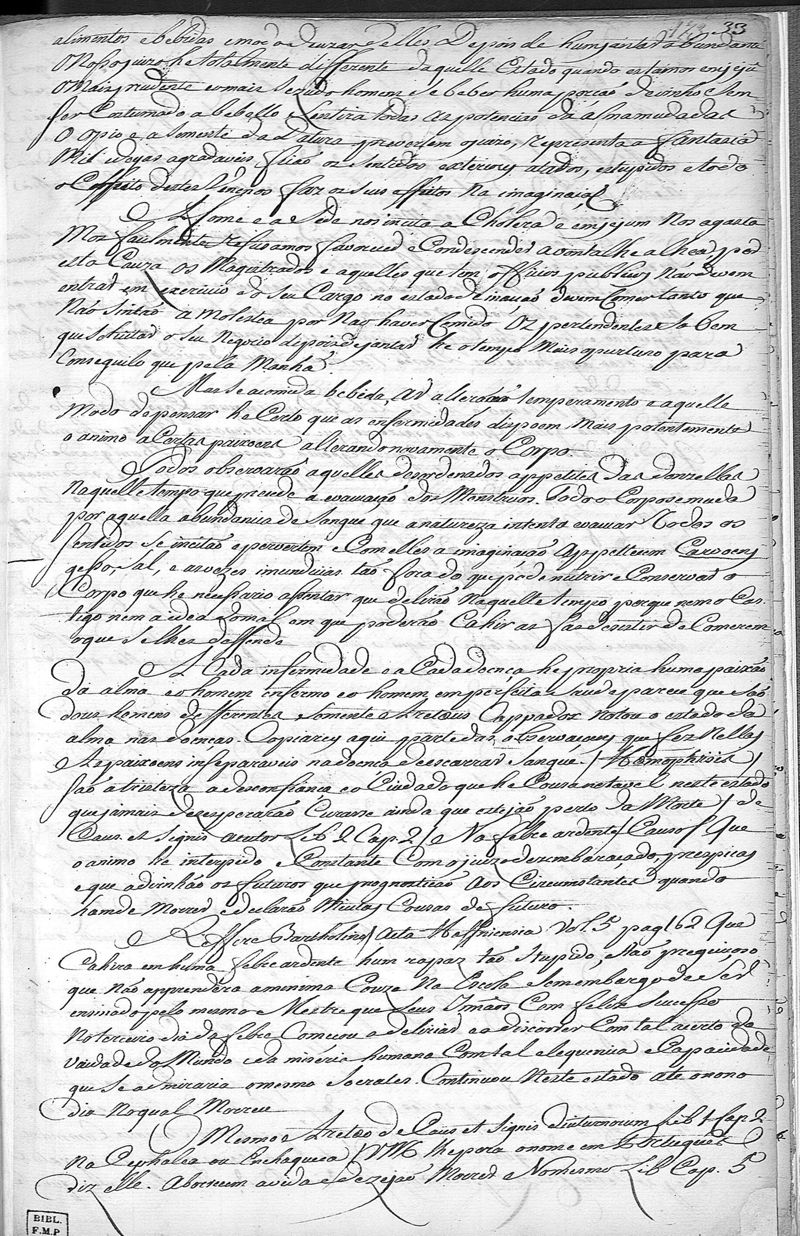 173 33
alimentos e bebidas e modo de uzar delles. Depois de hum jantar abundante
O Nosso juizo he totalmente differente daquelle Estado quando estamos em jejũ
O Mais prudente e o mais sezudo homem se beber huma porçaõ de vinho sem
ser Costumado a bebello Sentirá todas as potencias da alma mudadas
O opio e a Semente da Datura pervertem o juizo, representa a Fantasia
Mil ideyas agradaveis, ficaõ os Sentidos exteriores atados, estupidos e todo
o Effeito destes Venenos faz os seus effeitos na imaginaçaõ
A fome e a Sede nos incita a Cholera e em jejum Nos agasta
Mos facilmente refusamos favorecer e Condescender a vontade alhea, por
esta Cauza os Magistrados e aquelles que tem officios publicos Naõ devem
entrar em exercicio do Seu Cargo no estado de inaniçaõ devem Comer tanto que
Naõ Sintaõ a Molestia por Naõ haver Comido Os pertendentes Sabem
que Solicitar o Seu Negocio depois de jantar he o tempo Mais oportuno para
Conseguilo que pela Manhã
Mas se a comida bebida, Ar alteraõ temperamento e aquelle
Modo de pensar he Certo que as enfermidades dispoem Mais potentemente
o animo a Certas paixoens alterando novamente o Corpo.
Todos observaraõ aquelles desordenados appetites das donzellas
Naquelle tempo que precede a evacuaçaõ dos Menstruos. Todo o Corpo se muda
por aquella abundancia de Sangue que a natureza intenta evacuar Todos os
Sentidos se incitaõ e pervertem e Com elles a imaginaçaõ Appettecem Carvoens
gesso Sal, e as vezes immundicias taõ fora do que pode nutrir e Conservar o
Corpo que he necessario assentar que deliraõ Naquelle tempo porque nem o Cas-
tigo nem a idea do mal em que poderaõ Cahir as faz desistir de Comerem
o que Se lhes deffende
A Cada infermidade e a Cada doença he propria huma paixaõ
da alma e o homem enfermo e o homem em perfeita Saude parece que Saõ
dous homens differentes Somente Aretæus Cappadox Notou o estado da
alma nas doenças. Copiarey aqui parte das observaçoens que fez Nellas
As paixoens inseparaveis na doença de escarrar Sangue (Hæmophtisis)
Saõ a tristeza a desconfiança e o Cuidado que he Cousa notavel neste estado
que jamais desesperaraõ Curarse ainda que estejaõ perto da Morte (de
Caus. et Signis acutor Lib 2 Cap. 2) Na febre ardente (Causos) Que
o animo he intrepido e Constante Com o juizo dezembaraçado, prespicas
e que adivinhaõ os futuros que prognosticaõ aos Circumstantes quando
hamde Morrer e declaraõ Muitas Cousas de futuro.
Refere Bartholino (Acta Haffniensia Vol. 5 pag 162 Que
Cahira em huma febre ardente hum rapaz taõ Stupido, e taõ preguiçoso
que Naõ apprendera a minima Couza Na Escola Sem embargo de Ser
ensinado pelo mesmo Mestre que Seus Irmaõs Com feliz Sucesso
No terceiro dia da febre Começou a delirar e a discorrer Com tal acerto da
vaidade do Mundo e da miseria humana Com tal eloquencia e Capacidade
que Se admiraria o mesmo Socrates. Continuou Neste estado até o nono
dia No qual Morreu
Mesmo Aretæo de Caus et Signis diuturnorum Lib 1 Cap 2
Na Cephalea ou Enchaqueca / VM lhe pora o nome em Portuguez
diz elle. Aborrecem a vida e dezejaõ Morrer e No mesmo Lib Cap. 5
BIBL.
F.M.P